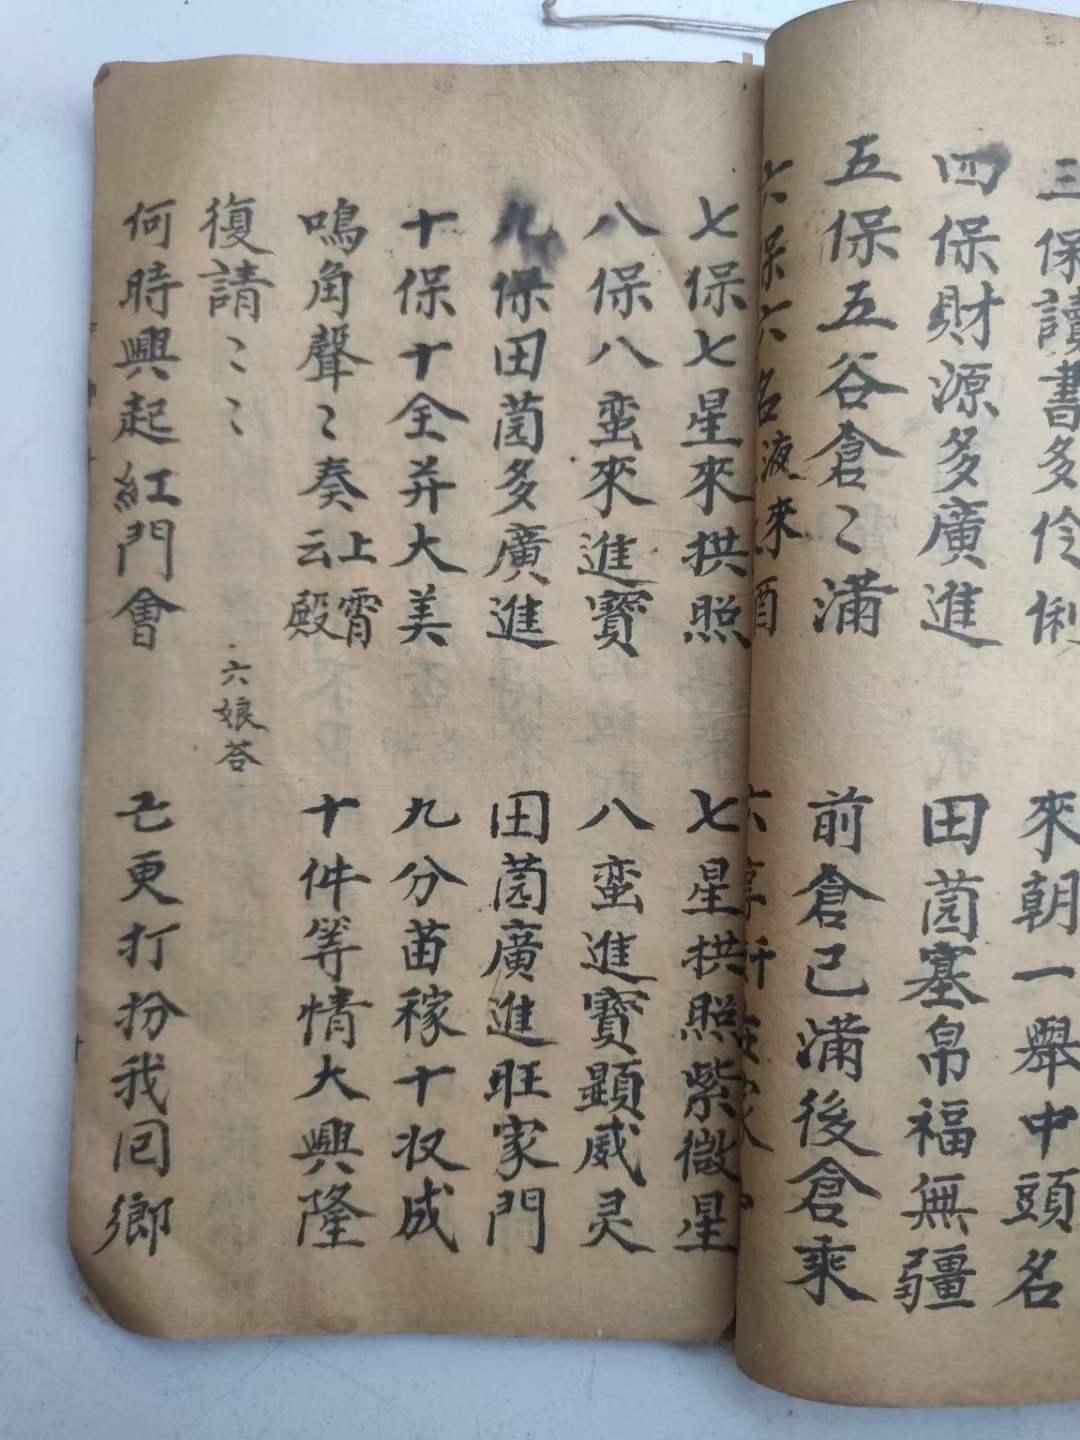 三保讀書多伶俐
來朝一舉中頭名
四保財源多廣進
田茵塞帛福無疆
五保五谷倉〻滿
前倉已滿後倉乘
六保六名液來酉
六享
七保七星來拱照
七星拱照紫微星
八保八蛮來進寶
八蛮進寶顯威灵
九保田茵多廣進
田茵廣進旺家門
十保十全并大美
九分苗稼十収成
鳴角聲〻奏上霄云殿
十件等情大興隆
復請〻〻
六娘荅
何時興起紅門會
乇更打扮我囘鄉